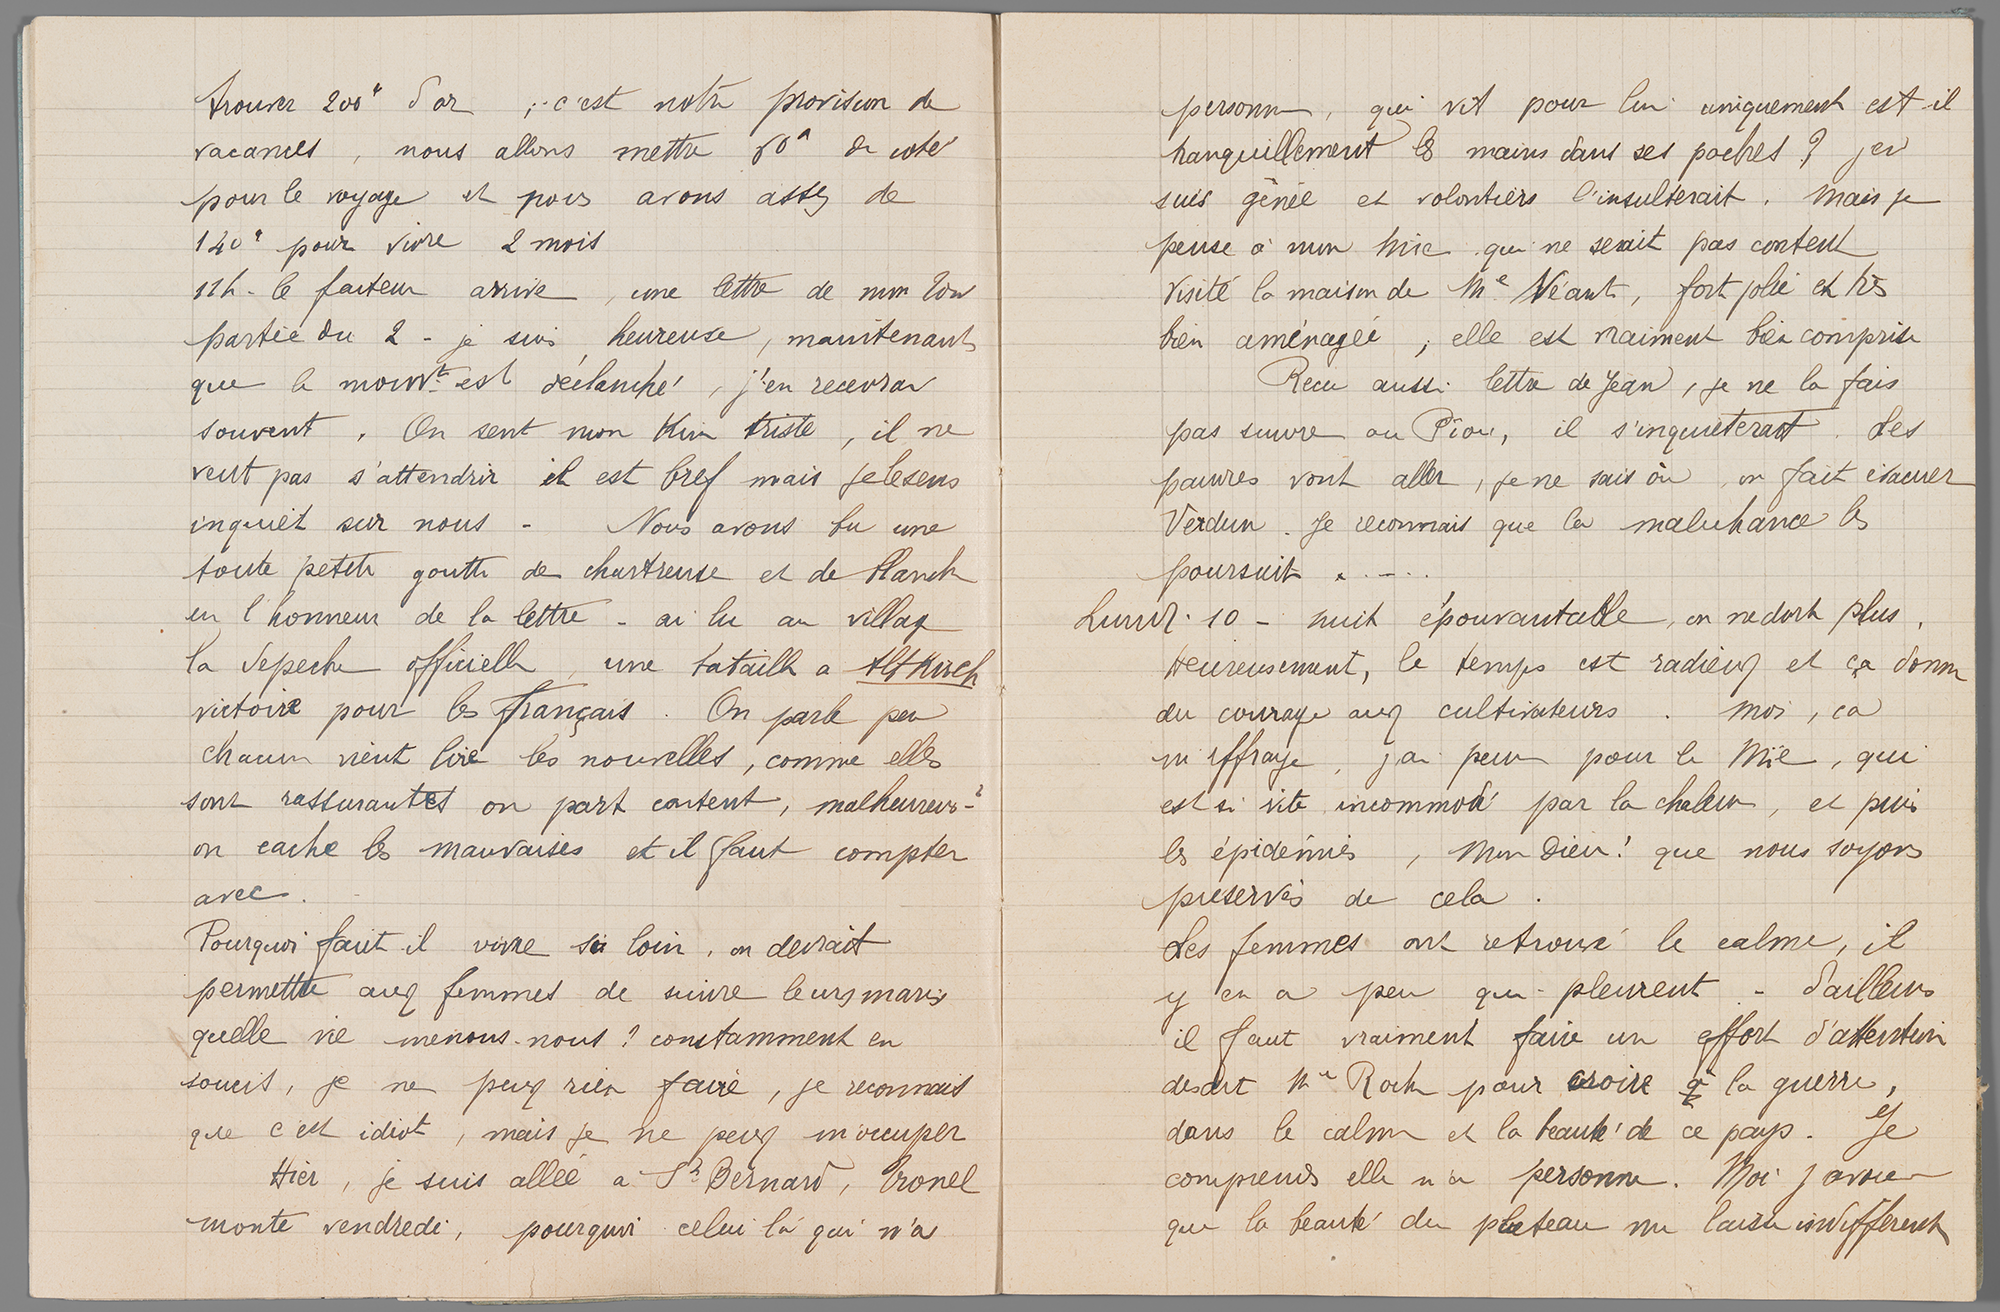 trouver 200f d'or, c'est notre provision de
vacances, nous allons mettre 60f de coté
pour le voyage et nous avons assez de
140f pour vivre 2 mois
11h - le facteur arrive, une lettre de mon
partie du 2 - je suis heureuse, maintenant
que le mouvt est déclanché, j'en recevrai
souvent. On sent mon triste, il ne
veut pas s'attendrir il est bref mais je le sens
inquiet sur nous - Nous avons bu une
toute petite goutte de chartreuse et de
en l'honneur de la lettre - ai lu au village
la dépeche officielle, une bataille a Altkirch
victoire pour les Français. On parle peu
chacun vient lire les nouvelles, comme elles
sont rassurantes on part content, malheureus-t
on cache les mauvaises et il faut compter
avec.
Pourquoi faut-il vivre si loin, on devrait
permettre aux femmes de suivre leurs maris
quelle vie menons-nous ? constamment en
soucis, je ne peux rien faire, je reconnais
que c'est idiot, mais je ne peux m'occuper
Hier, je suis allée a St Bernard,
monte vendredi, pourquoi celui là qui n'a
personne, qui vit pour lui uniquement est-il
tranquillement les mains dans ses poches ? j'en
suis gênée et volontiers l'insulterait. Mais je
pense à mon Mie qui ne serait pas content
Visité la maison de Me Véant, fort jolie et très
bien aménagée, elle est vraiment bien comprise
Recu aussi lettre de Jean, je ne la fais
pas suivre au Piou, il s'inquièterait. Les
pauvres vont aller, je ne sais où, on fait évacuer
Verdun. Je reconnais que la malechance les
poursuit . . - . .
Lundi. 10 - nuit épouvantable, on ne dort plus.
Heureusement, le temps est radieux et ça donne
du courage aux cultivateurs. Moi, ca
m'effraye, j'ai peur pour le Mie, qui
est si vite incommodé par la chaleur, et puis
les épidémies, Mon Dieu ! que nous soyons
préservés de cela.
Les femmes ont retrouvé le calme, il
y en a peu qui pleurent - d'ailleurs
il faut vraiment faire un effort d'attention
disait Me Roch pour croire à la guerre,
dans le calme et la beauté de ce pays. Je
comprends elle n'a personne. Moi j'avoue
que la beauté du plateau me laisse indifférente